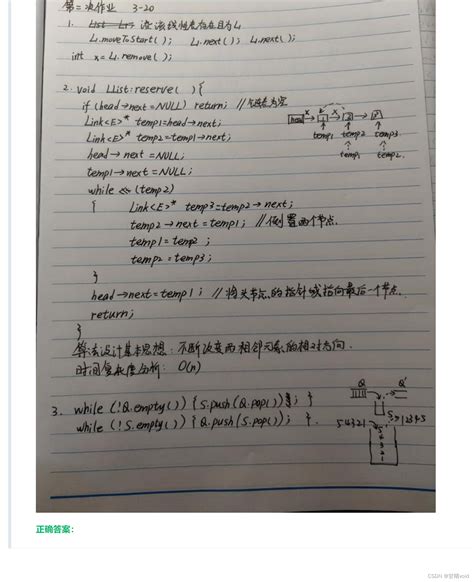 第二次作业 3-20
1. 设该线性表存在且为L1
L1.moveToStart(); L1.next(); L1.next();
int x = L1.remove();
2. void LList::reserve( ) {
if (head→next = NULL) return; //链表为空
Link<E>* temp1=head→next;
Link<E>* temp2=temp1→next;
head→next =NULL;
temp1→next = NULL;
while (temp2)
{ Link<E>* temp3=temp2→next;
temp2→next = temp1; //倒置两个节点.
temp1=temp2;
temp2=temp3;
}
head→next=temp1; //将头节点的指针域指向最后一个节点.
return;
}
head 1 2 3
temp1 temp2 temp3
temp1 temp2
算法设计基本思想: 不断改变两相邻元素的相对方向.
时间复杂度分析: O(n)
3. while (!Q.empty()) { S.push(Q.pop()); }
while (!S.empty()) { Q.push(S.pop()); }
Q Q'
S
54321 12345
5
4
3
2
1
正确答案: